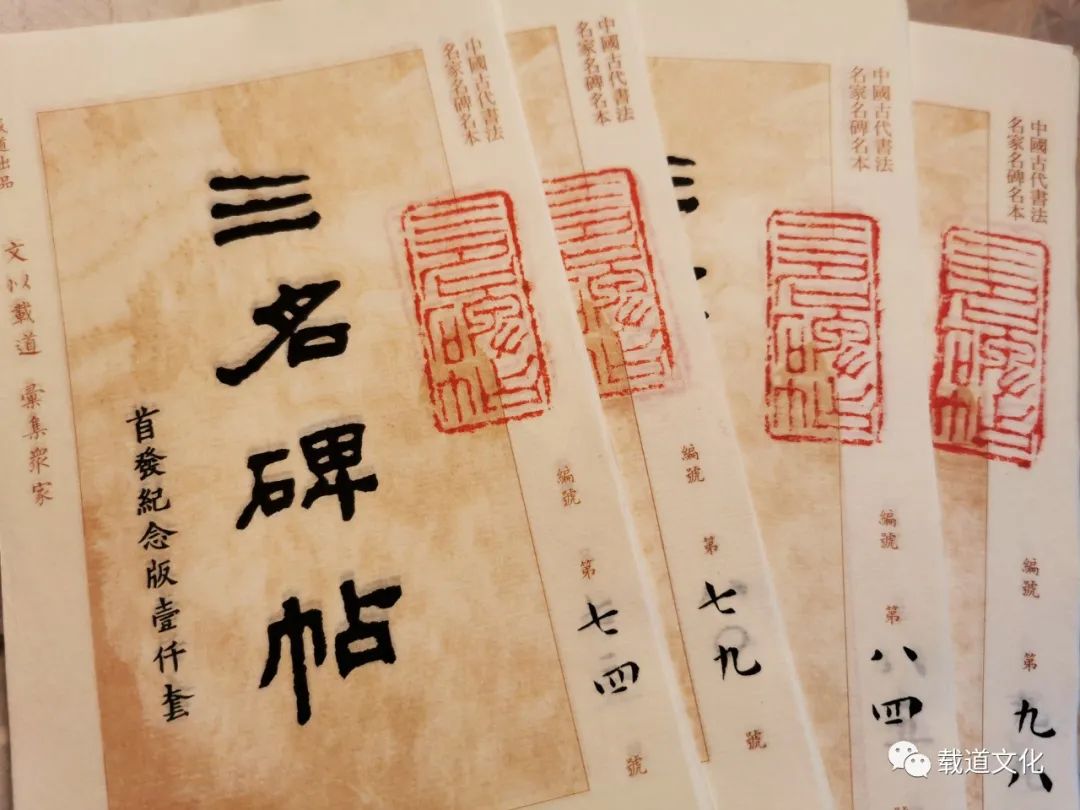 中國古代書法
名家名碑名本
三名碑帖
首發紀念版壹仟套
文以載道 彙集眾家
道出品
三名碑帖
編號
第
七四
號
中國古代書法
名家名碑名本
三名碑帖
編號
第
七九
號
中國古代書法
名家名碑名本
三名碑帖
編號
第
八四
中國古代書法
名家名碑名本
三名碑帖
編號
第
九八
载道文化